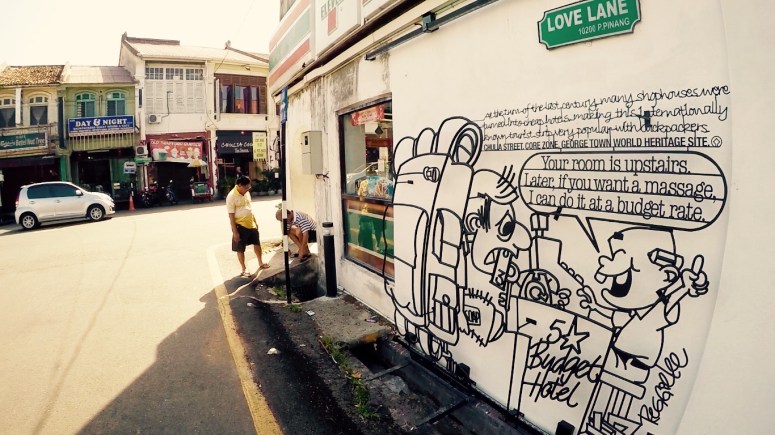 LOVE LANE
10200 P.PINANG
At the turn of the last century, many shophouses were
turned into cheap hotels, making this internationally
known tourist strip very popular with backpackers.
CHULIA STREET, CORE ZONE, GEORGE TOWN WORLD HERITAGE SITE.
Your room is upstairs.
Later, if you want a massage,
I can do it at a budget rate.
5
Budget
Hotel
Reggie Lee
DAY & NIGHT
CHULIA